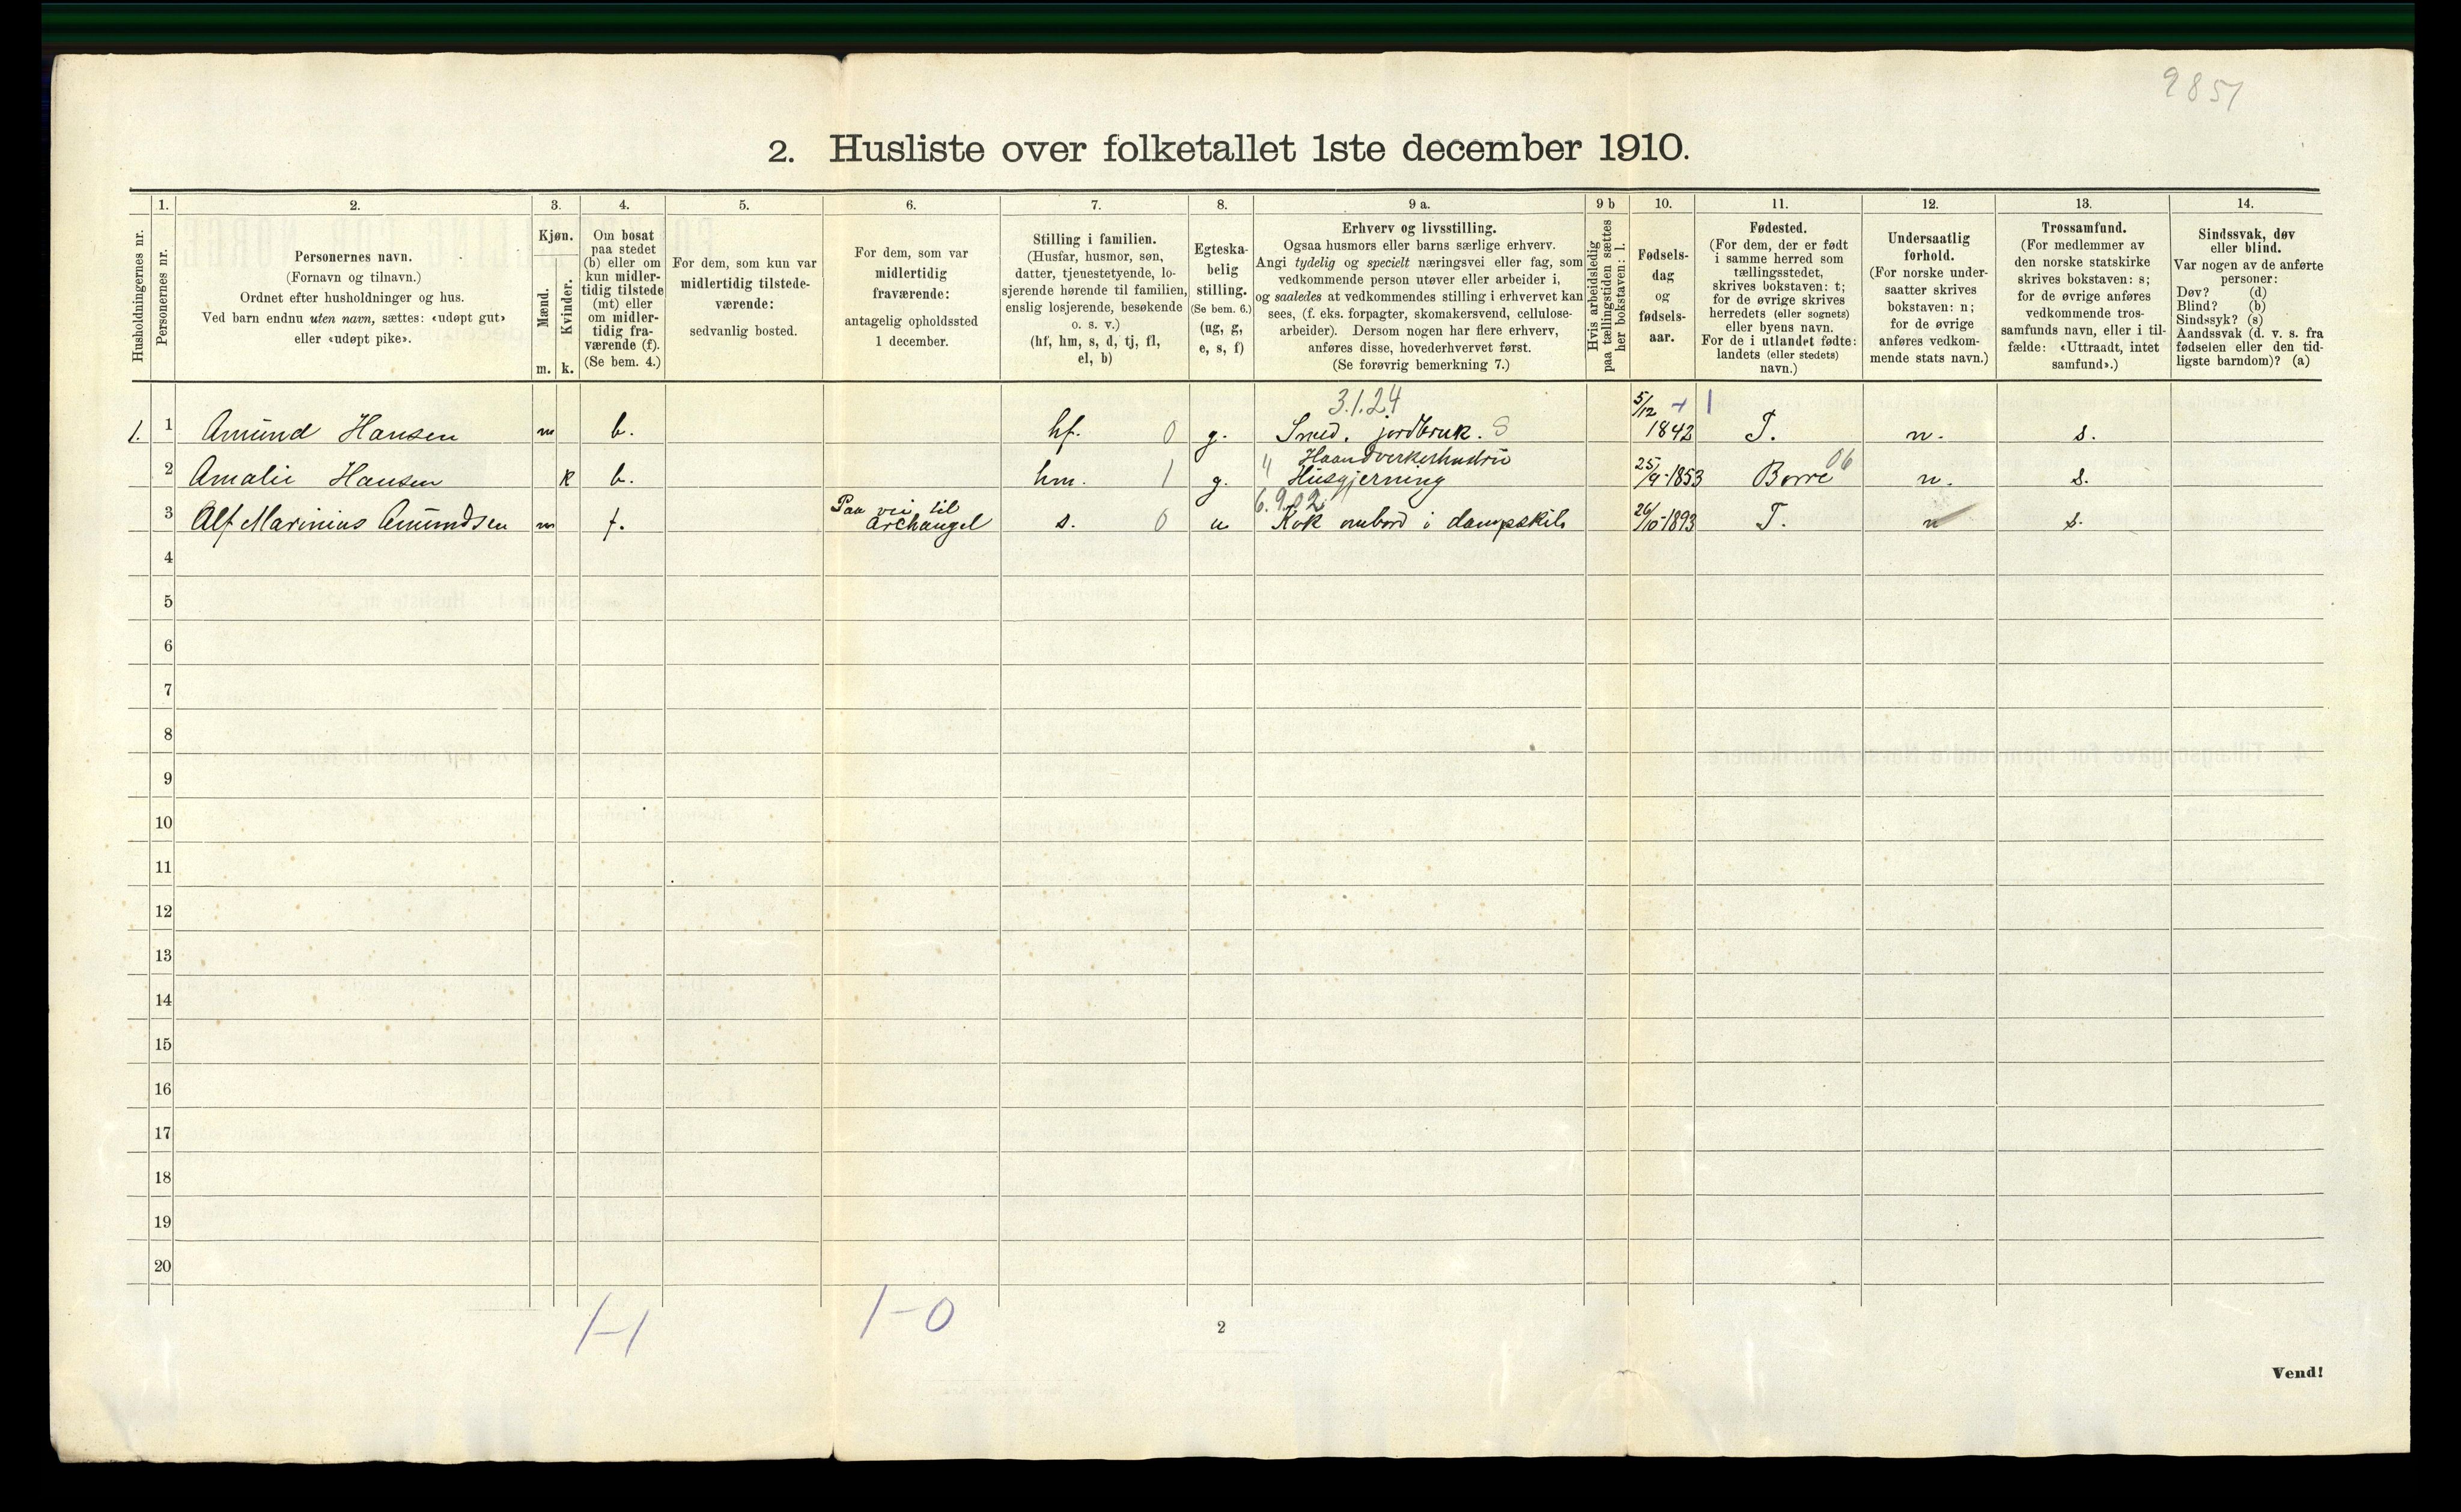 9851
2. Husliste over folketallet 1ste december 1910.
Husholdningernes nr.
1.
Personernes nr.
2.
Personernes navn.
(Fornavn og tilnavn.)
Ordnet efter husholdninger og hus.
Ved barn endnu uten navn, sættes: «udøpt gut»
eller «udøpt pike».
3.
Kjøn.
Mænd.
Kvinder.
m.
k.
4.
Om bosat
paa stedet
(b) eller om
kun midler-
tidig tilstede
(mt) eller
om midler-
tidig fra-
værende (f).
(Se bem. 4.)
5.
For dem, som kun var
midlertidig tilstede-
værende:
sedvanlig bosted.
6.
For dem, som var
midlertidig
fraværende:
antagelig opholdssted
1 december.
7.
Stilling i familien.
(Husfar, husmor, søn,
datter, tjenestetyende, lo-
sjerende hørende til familien,
enslig losjerende, besøkende
o. s. v.)
(hf, hm, s, d, tj, fl,
el, b)
8.
Egteska-
belig
stilling.
(Se bem. 6.)
(ug, g,
e, s, f)
9 a.
Erhverv og livsstilling.
Ogsaa husmors eller barns særlige erhverv.
Angi tydelig og specielt næringsvei eller fag, som
vedkommende person utøver eller arbeider i,
og saaledes at vedkommendes stilling i erhvervet kan
sees, (f. eks. forpagter, skomakersvend, cellulose-
arbeider). Dersom nogen har flere erhverv,
anføres disse, hovederhvervet først.
(Se forøvrig bemerkning 7.)
9 b
Hvis arbeidsledig
paa tællingstiden sættes
her bokstaven: l.
10.
Fødsels-
dag
og
fødsels-
aar.
11.
Fødested.
(For dem, der er født
i samme herred som
tællingsstedet,
skrives bokstaven: t;
for de øvrige skrives
herredets (eller sognets)
eller byens navn.
For de i utlandet fødte:
landets (eller stedets)
navn.)
12.
Undersaatlig
forhold.
(For norske under-
saatter skrives
bokstaven: n;
for de øvrige
anføres vedkom-
mende stats navn.)
13.
Trossamfund.
(For medlemmer av
den norske statskirke
skrives bokstaven: s;
for de øvrige anføres
vedkommende tros-
samfunds navn, eller i til-
fælde: «Uttraadt, intet
samfund».)
14.
Sindssvak, døv
eller blind.
Var nogen av de anførte
personer:
Døv? (d)
Blind? (b)
Sindssyk? (s)
Aandssvak (d. v. s. fra
fødselen eller den tid-
ligste barndom)? (a)
3.1.24 5/12 + 1
1. 1 Amund Hansen m b. hf. 0 g. Smed, jordbruk. S 1842 T. n. s.
Haandverkerhustru
2 Amalie Hansen k b. hm. 1 g. " Husgjerning 25/9-1853 Borre 06 n. s.
Paa vei til 6.9.02
3 Alf Marinius Amundsen m f. Archangel s. 0 u Kok ombord i dampskib 26/10-1893 T. n s.
4
5
6
7
8
9
10
11
12
13
14
15
16
17
18
19
20
1-1
1-0
2
Vend!